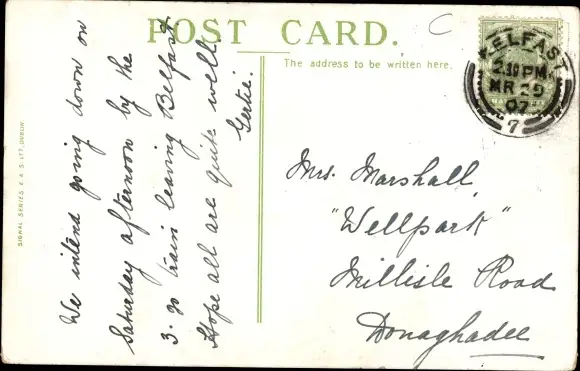 POST CARD.
The address to be written here.
BELFAST
2.30 PM
MR 29
07
7
We intend going down on
Saturday afternoon by the
3-30 train leaving Belfast
Hope all are quite well
Gertie.
Mrs. Marshall,
"Wellpark"
Millisle Road
Donaghadee
SIGNAL SERIES E. & S. LTT, DUBLIN.